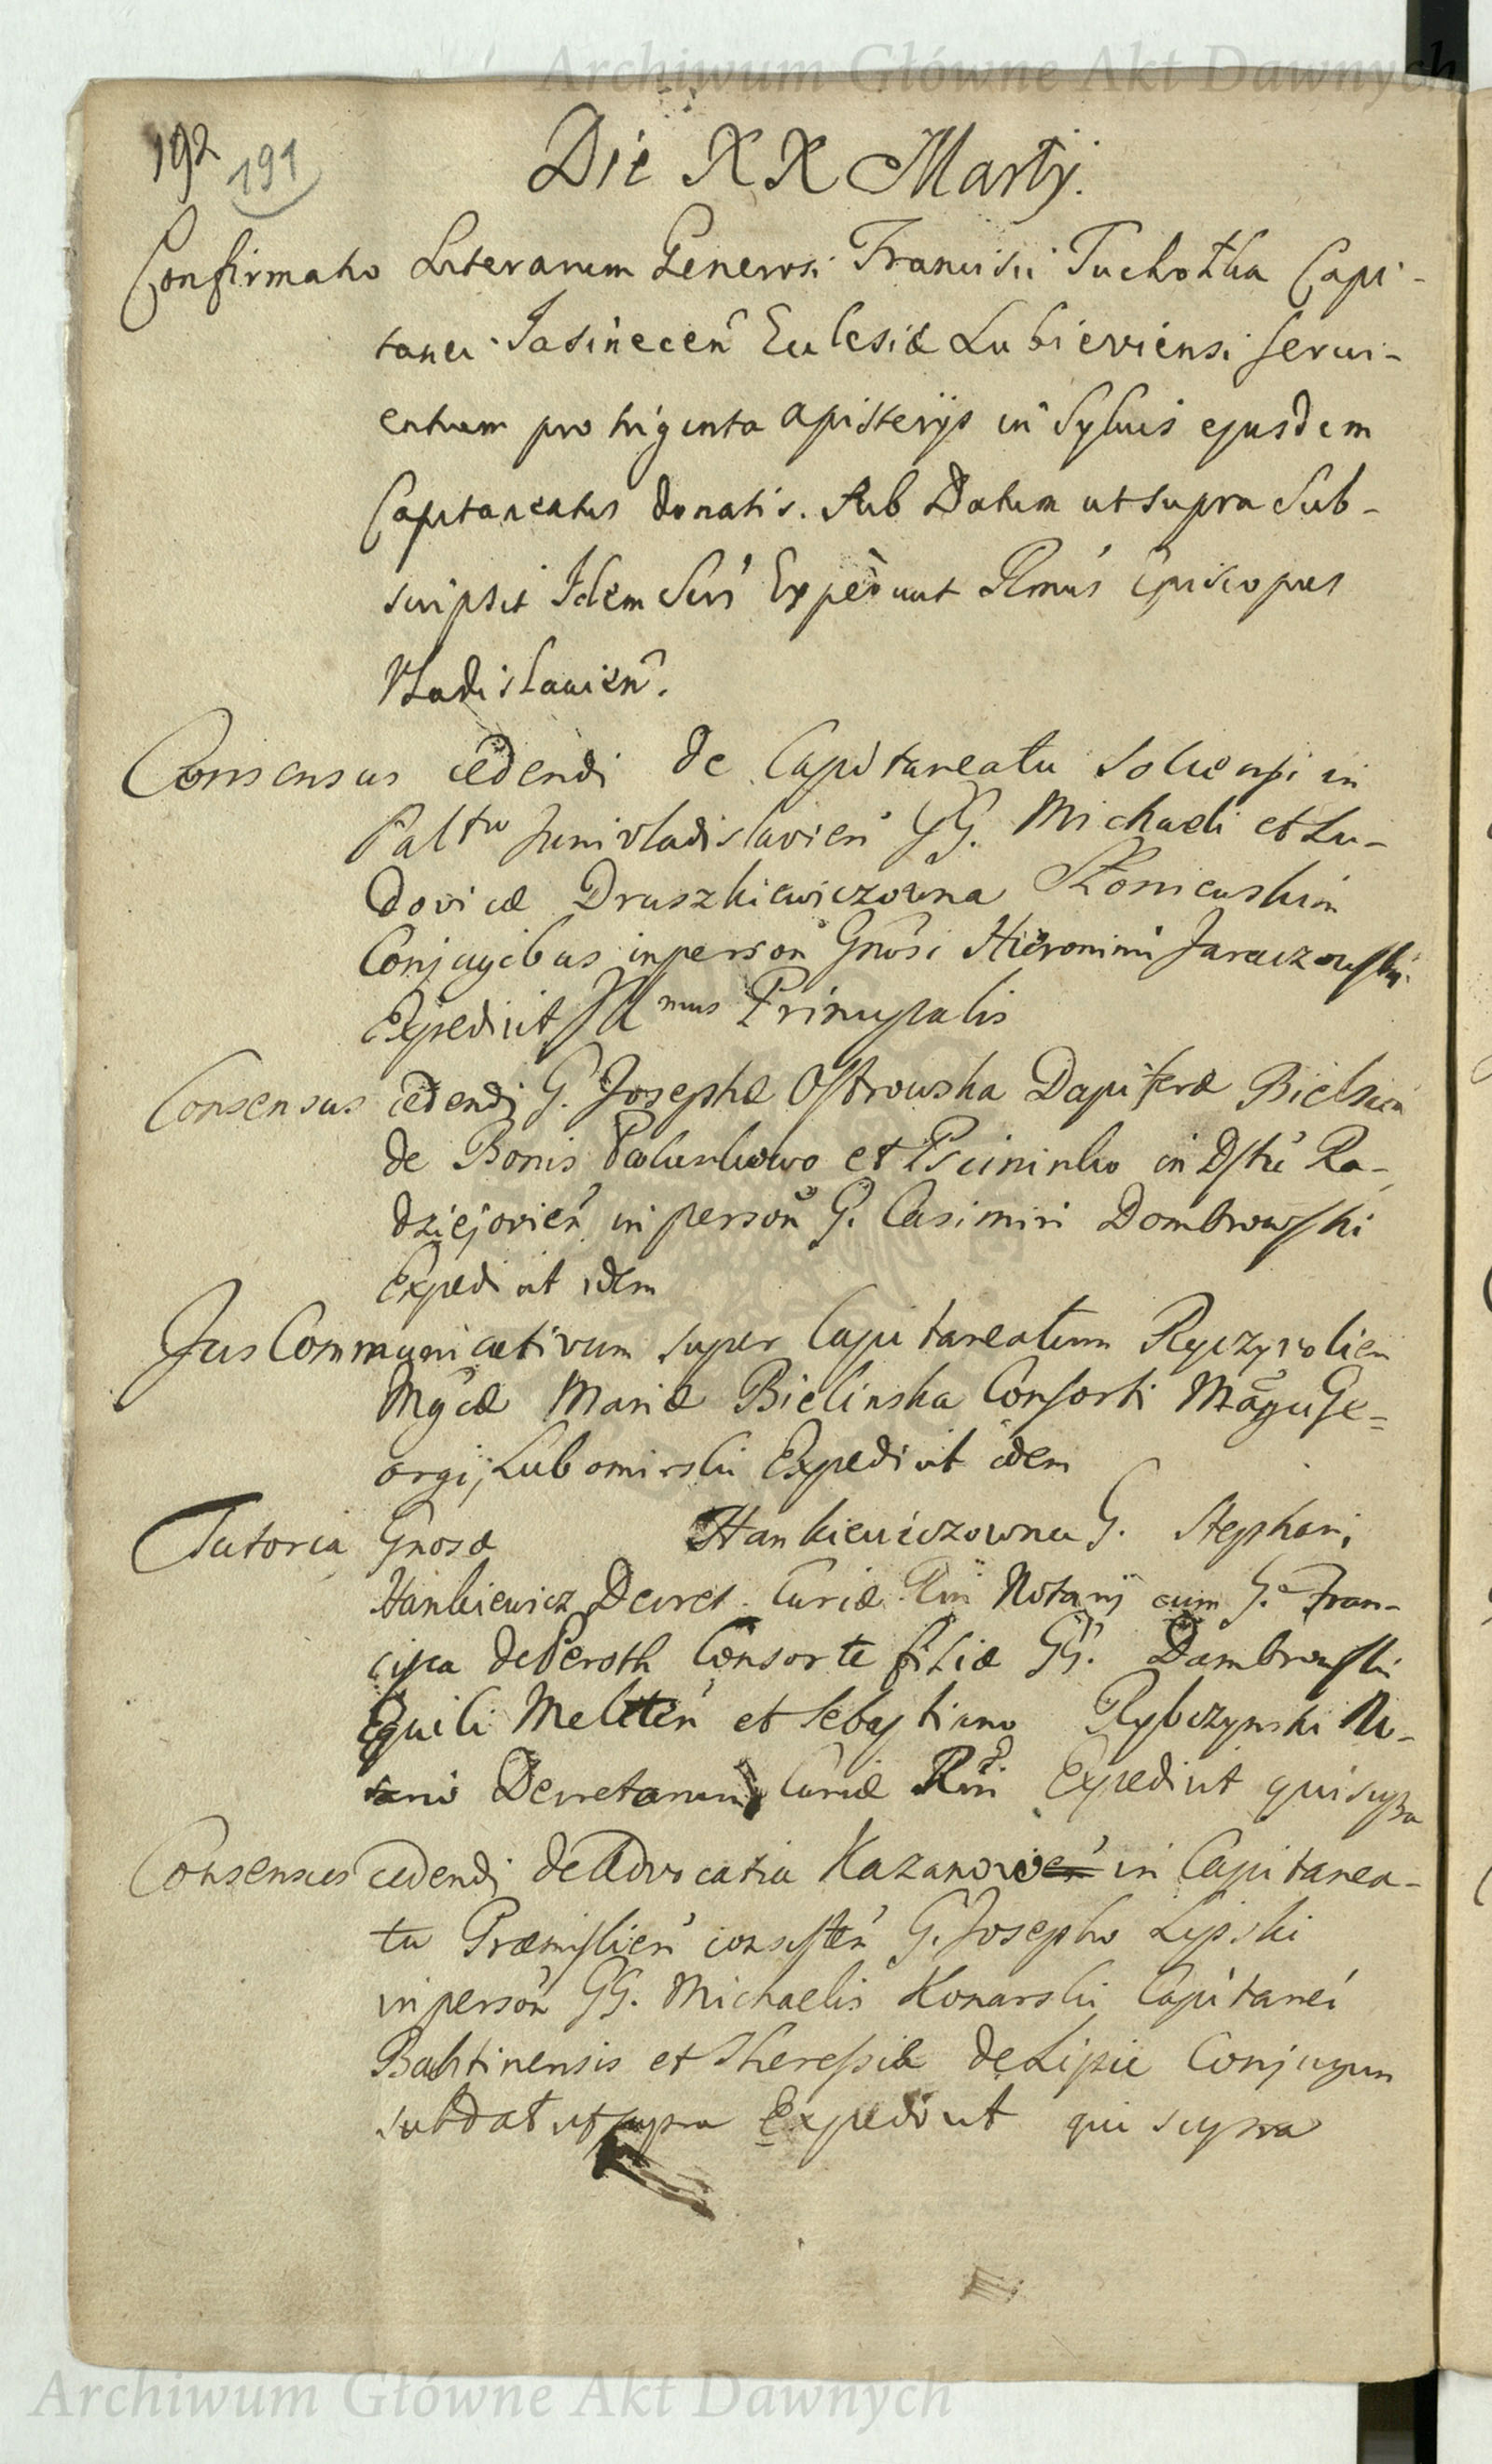 Archiwum Główne Akt Dawnych
192 191
Die XX Martij.
Confirmatio Literarum Generosi Francisci Tuchołka Capi-
tanei Jasinecen Ecclesiæ Lubieviensi servi-
entium pro triginta apisterijs in Sylvis ejusdem
Capitaneatus donatis. Sub Datum ut supra Sub-
scripsit Idem Sers Expedivit Illmus Episcopus
Vladislavien.
Consensus cedendi de Capitaneatu in
Palttu Junivladislavien GG. Michaeli et Lu-
dovicæ Druszkiewiczowna Słoniewskim
Conjugibus in person Gnosi Hieronimi Jaraczewski
Expedivit Illmus Principalis
Consensus cedendi G. Josephæ Ostrowska Dapiferæ Bielscen
de Bonis et in Dstu Ra-
dziejovien in person G. Casimiri Dombrowski
Expedivit idem
Jus Communicativum super Capitaneatum Ryczyvolien
Mgcæ Mariæ Bielinska Consorti Magci Ge-
orgij Lubomirski Expedivit idem
Tutoria Gnosæ Hankiewiczowna G. Stephani
Hankiewicz Decret. Curiæ Rni Notarij cum G. Fran-
cisca de Peroth Consorte filiæ GG. Dambrowski
Equiti Meliten et Sebastiano Rybczynski No-
tario Decretorum Curiæ Rni Expedivit qui supra
Consensus cedendi de Advocatia Kazanow in Capitanea-
tu Præmislien consisten G. Josepho Lipski
in person GG. Michaelis Konarski Capitanei
Bahtinensis et Theresiæ de Lipie Conjugum
sub dat ut supra Expedivit qui supra
Archiwum Główne Akt Dawnych